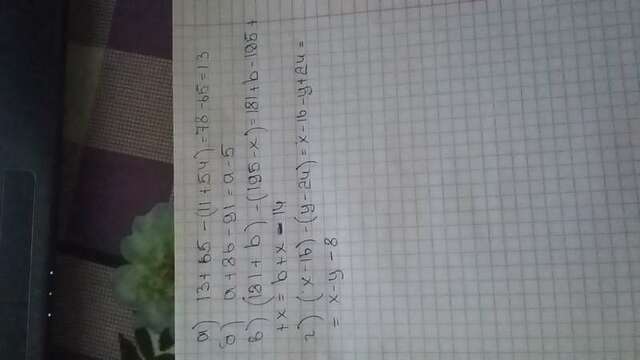 а) 13+65-(11+54)=78-65=13
б) a+86-91=a-5
в) (181+b)-(195-x)=181+b-195+
+x=b+x-14
г) (x-16)-(y-24)=x-16-y+24=
=x-y-8